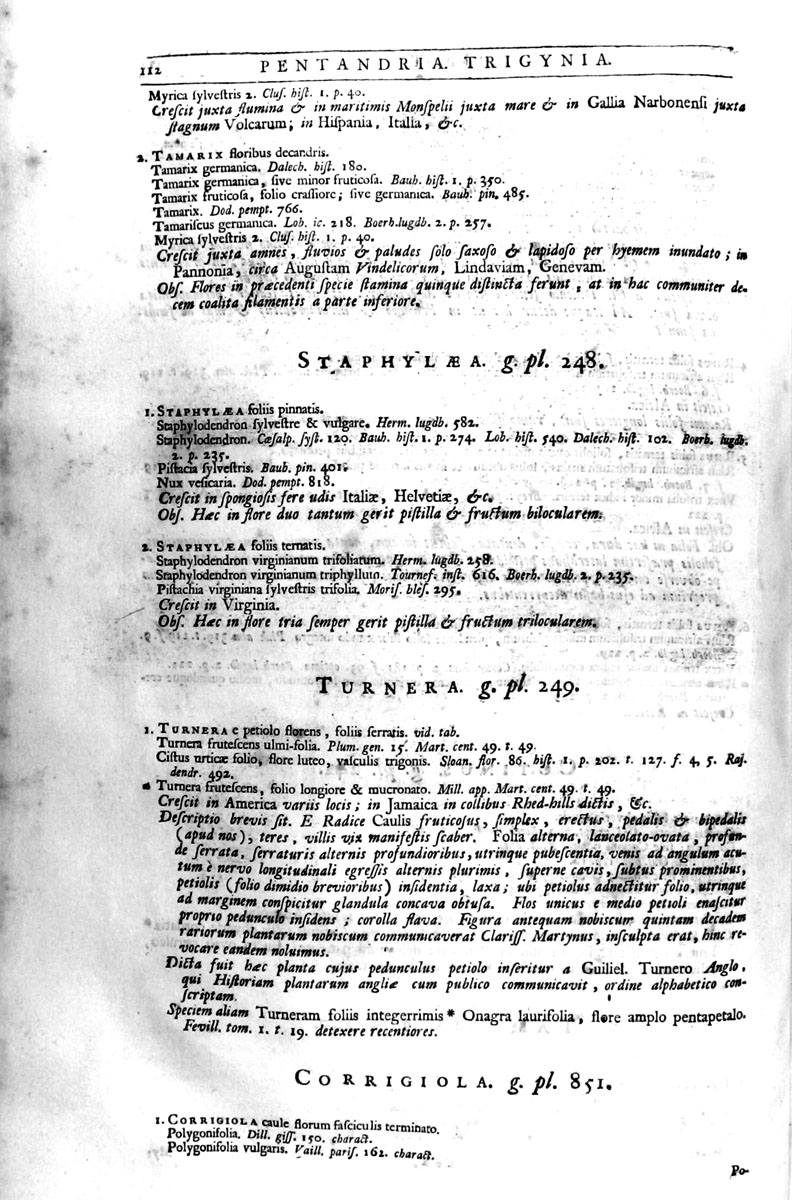 112 PENTANDRIA. TRIGYNIA.
Myrica ſylveſtris 2. Cluſ. hiſt. 1. p. 40.
Creſcit juxta flumina & in maritimis Monſpelii juxta mare & in Gallia Narbonenſi juxta
ſtagnum Volcarum; in Hiſpania, Italia, &c.
2. TAMARIX floribus decandris.
Tamarix germanica. Dalech. hiſt. 180.
Tamarix germanica, ſive minor fruticoſa. Bauh. hiſt. 1. p. 350.
Tamarix fruticoſa, folio craſſiore; ſive germanica. Bauh. pin. 485.
Tamarix. Dod. pempt. 766.
Tamariſcus germanica. Lob. ic. 218. Boerh. lugdb. 2. p. 257.
Myrica ſylveſtris 2. Cluſ. hiſt. 1. p. 40.
Creſcit juxta amnes, fluvios & paludes ſolo ſaxoſo & lapidoſo per hyemem inundato; in
Pannonia, circa Auguſtam Vindelicorum, Lindaviam, Genevam.
Obſ. Flores in præcedenti ſpecie ſtamina quinque diſtincta ferunt, at in hac communiter de-
cem coalita filamentis a parte inferiore.
STAPHYLÆA. g. pl. 248.
1. STAPHYLÆA foliis pinnatis.
Staphylodendron ſylveſtre & vulgare. Herm. lugdb. 582.
Staphylodendron. Cæſalp. ſyſt. 120. Bauh. hiſt. 1. p. 274. Lob. hiſt. 540. Dalech. hiſt. 102. Boerh. lugdb.
2. p. 235.
Piſtacia ſylveſtris. Bauh. pin. 401.
Nux veſicaria. Dod. pempt. 818.
Creſcit in ſpongioſis fere udis Italiæ, Helvetiæ, &c.
Obſ. Hæc in flore duo tantum gerit piſtilla & fructum bilocularem.
2. STAPHYLÆA foliis ternatis.
Staphylodendron virginianum trifoliatum. Herm. lugdb. 258.
Staphylodendron virginianum triphyllum. Tournef. inſt. 616. Boerh. lugdb. 2. p. 235.
Piſtachia virginiana ſylveſtris trifolia. Moriſ. bleſ. 295.
Creſcit in Virginia.
Obſ. Hæc in flore tria ſemper gerit piſtilla & fructum trilocularem.
TURNERA. g. pl. 249.
1. TURNERA e petiolo florens, foliis ſerratis. vid. tab.
Turnera fruteſcens ulmi-folia. Plum. gen. 15. Mart. cent. 49. t. 49.
Ciſtus urticæ folio, flore luteo, vaſculis trigonis. Sloan. flor. 86. hiſt. 1. p. 202. t. 127. f. 4, 5. Raj.
dendr. 492.
* Turnera fruteſcens, folio longiore & mucronato. Mill. app. Mart. cent. 49. t. 49.
Creſcit in America variis locis; in Jamaica in collibus Rhed-hills dictis, &c.
Deſcriptio brevis ſit. E Radice Caulis fruticoſus, ſimplex, erectus, pedalis & bipedalis
(apud nos), teres, villis vix manifeſtis ſcaber. Folia alterna, lanceolato-ovata, profun-
de ſerrata, ſerraturis alternis profundioribus, utrinque pubeſcentia, venis ad angulum acu-
tum e nervo longitudinali egreſſis alternis plurimis, ſuperne cavis, ſubtus prominentibus,
petiolis (folio dimidio brevioribus) inſidentia, laxa; ubi petiolus adnectitur folio, utrinque
ad marginem conſpicitur glandula concava obtuſa. Flos unicus e medio petioli enaſcitur
proprio pedunculo inſidens; corolla flava. Figura antequam nobiscum quintam decadem
rariorum plantarum nobiscum communicaverat Clariſſ. Martynus, inſculpta erat, hinc re-
vocare eandem noluimus.
Dicta fuit hæc planta cujus pedunculus petiolo inſeritur a Guiliel. Turnero Anglo,
qui Hiſtoriam plantarum angliæ cum publico communicavit, ordine alphabetico con-
ſcriptam.
Speciem aliam Turneram foliis integerrimis * Onagra laurifolia, flore amplo pentapetalo.
Fevill. tom. 1. t. 19. detexere recentiores.
CORRIGIOLA. g. pl. 851.
1. CORRIGIOLA caule florum faſciculis terminato.
Polygonifolia. Dill. giſſ. 150. charact.
Polygonifolia vulgaris. Vaill. pariſ. 162. charact.
Po-